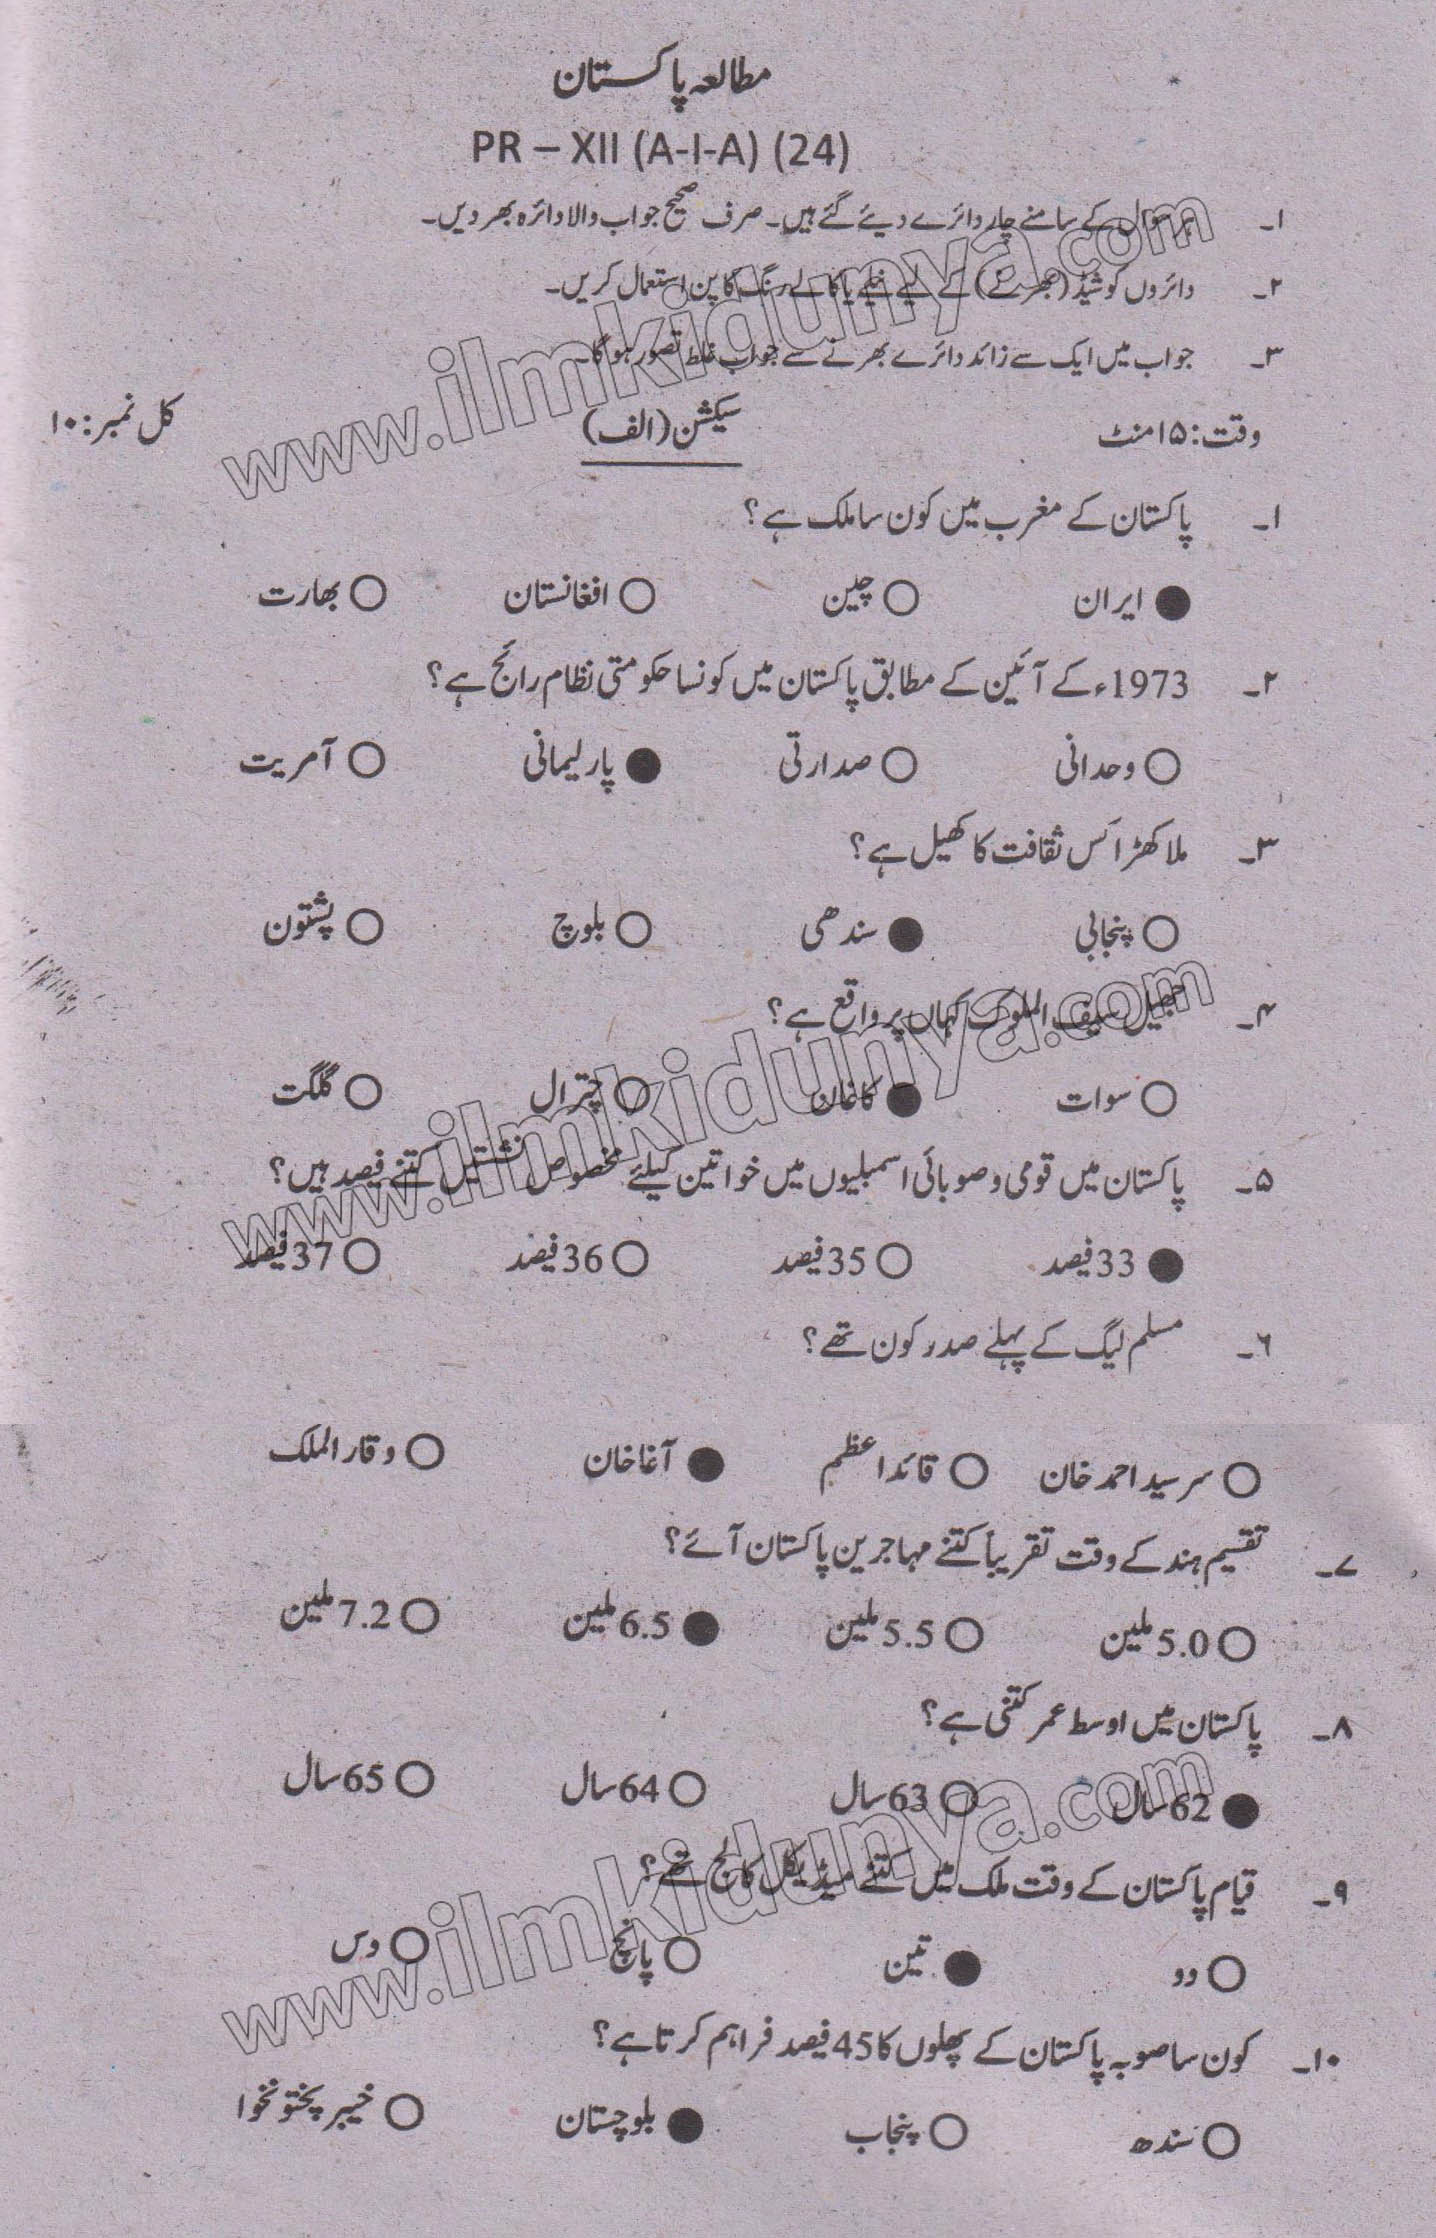 مطالعہ پاکستان
PR – XII (A-I-A) (24)
۱۔ ہر سوال کے سامنے چار دائرے دیئے گئے ہیں۔ صرف صحیح جواب والا دائرہ بھر دیں۔
۲۔ دائروں کو شیڈ (بھرنے) کے لیے نیلے یا کالے رنگ کا پن استعمال کریں۔
۳۔ جواب میں ایک سے زائد دائرے بھرنے سے جواب غلط تصور ہو گا۔
وقت: ۱۵منٹ سیکشن (الف) کل نمبر: ۱۰
۱۔ پاکستان کے مغرب میں کون سا ملک ہے؟
ایران چین افغانستان بھارت
۲۔ 1973ء کے آئین کے مطابق پاکستان میں کونسا حکومتی نظام رائج ہے؟
وحدانی صدارتی پارلیمانی آمریت
۳۔ ملاکھڑا کس ثقافت کا کھیل ہے؟
پنجابی سندھی بلوچ پشتون
۴۔ جھیل سیف الملوک کہاں پر واقع ہے؟
سوات کاغان چترال گلگت
۵۔ پاکستان میں قومی و صوبائی اسمبلیوں میں خواتین کیلئے مخصوص نشستیں کتنے فیصد ہیں؟
33فیصد 35فیصد 36فیصد 37فیصد
۶۔ مسلم لیگ کے پہلے صدر کون تھے؟
سرسید احمد خان قائداعظم آغا خان وقار الملک
۷۔ تقسیم ہند کے وقت تقریباً کتنے مہاجرین پاکستان آئے؟
5.0ملین 5.5ملین 6.5ملین 7.2ملین
۸۔ پاکستان میں اوسط عمر کتنی ہے؟
62سال 63سال 64سال 65سال
۹۔ قیام پاکستان کے وقت ملک میں کتنے میڈیکل کالج تھے؟
دو تین پانچ دس
۱۰۔ کون سا صوبہ پاکستان کے پھلوں کا 45فیصد فراہم کرتا ہے؟
سندھ پنجاب بلوچستان خیبر پختونخوا
www.ilmkidunya.com
www.ilmkidunya.com
www.ilmkidunya.com